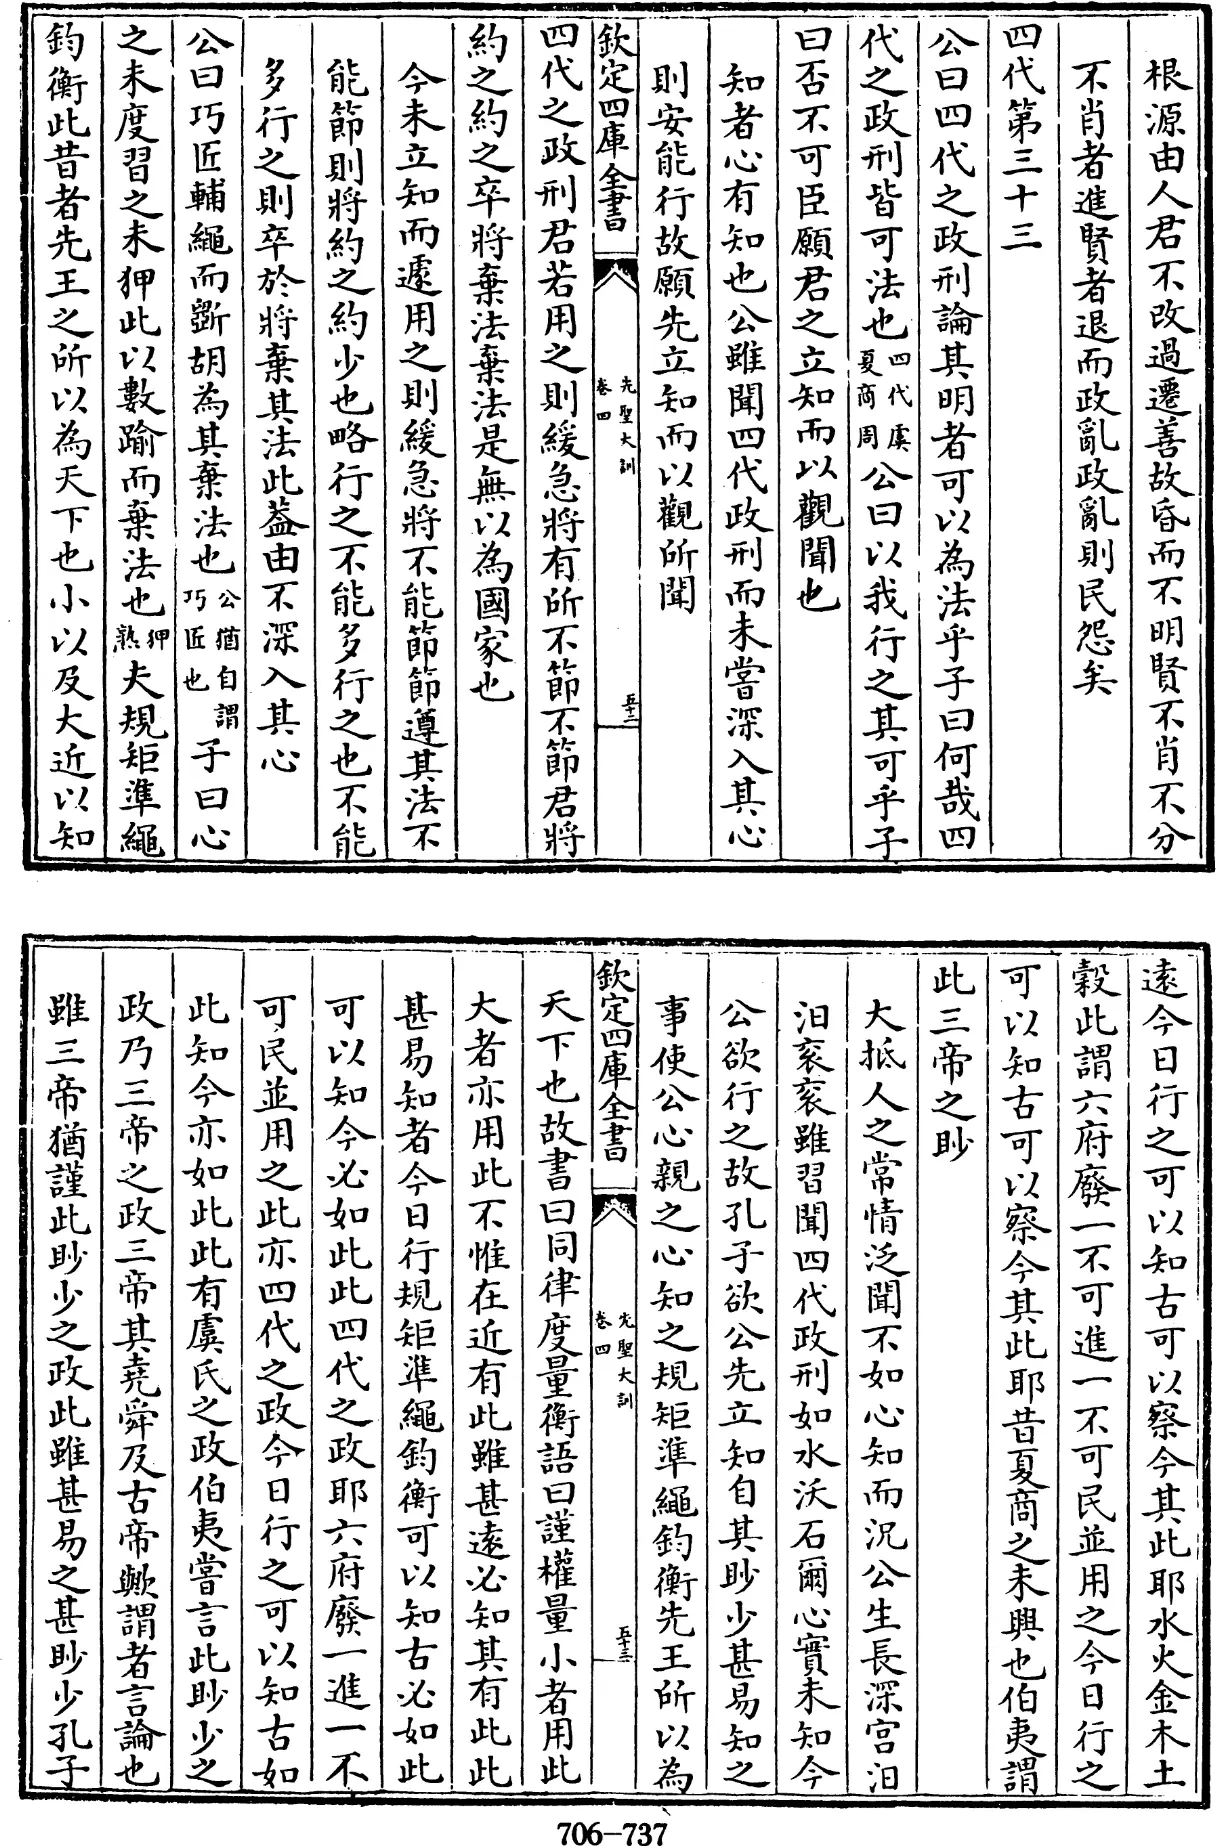 根源由人君不改過遷善故昏而不明賢不肖不分
不肖者進賢者退而政亂政亂則民怨矣
四代第三十三
公曰四代之政刑論其明者可以為法乎子曰何哉四
代之政刑皆可法也四代虞夏商周公曰以我行之其可乎子
曰否不可臣願君之立知而以觀聞也
知者心有知也公雖聞四代政刑而未嘗深入其心
則安能行故願先立知而以觀所聞
欽定四庫全書
先聖大訓
卷四
五十二
四代之政刑君若用之則緩急將有所不節不節君將
約之約之卒將棄法棄法是無以為國家也
今未立知而遽用之則緩急將不能節節遵其法不
能節則將約之約少也略行之不能多行之也不能
多行之則卒於將棄其法此葢由不深入其心
公曰巧匠輔繩而斵胡為其棄法也公猶自謂巧匠也子曰心
之未度習之未狎此以數踰而棄法也狎熟夫規矩準繩
鈞衡此昔者先王之所以為天下也小以及大近以知
遠今日行之可以知古可以察今其此耶水火金木土
穀此謂六府廢一不可進一不可民並用之今日行之
可以知古可以察今其此耶昔夏商之未興也伯夷謂
此三帝之眇
大抵人之常情泛聞不如心知而況公生長深宫汨
汨衮衮雖習聞四代政刑如水沃石爾心實未知今
公欲行之故孔子欲公先立知自其眇少甚易知之
事使公心親之心知之規矩準繩鈞衡先王所以為
欽定四庫全書
先聖大訓
卷四
五十三
天下也故書曰同律度量衡語曰謹權量小者用此
大者亦用此不惟在近有此雖甚遠必知其有此此
甚易知者今日行規矩準繩鈞衡可以知古必如此
可以知今必如此此四代之政耶六府廢一進一不
可民並用之此亦四代之政今日行之可以知古如
此知今亦如此此有虞氏之政伯夷嘗言此眇少之
政乃三帝之政三帝其堯舜及古帝歟謂者言論也
雖三帝猶謹此眇少之政此雖甚易之甚眇少孔子
706-737